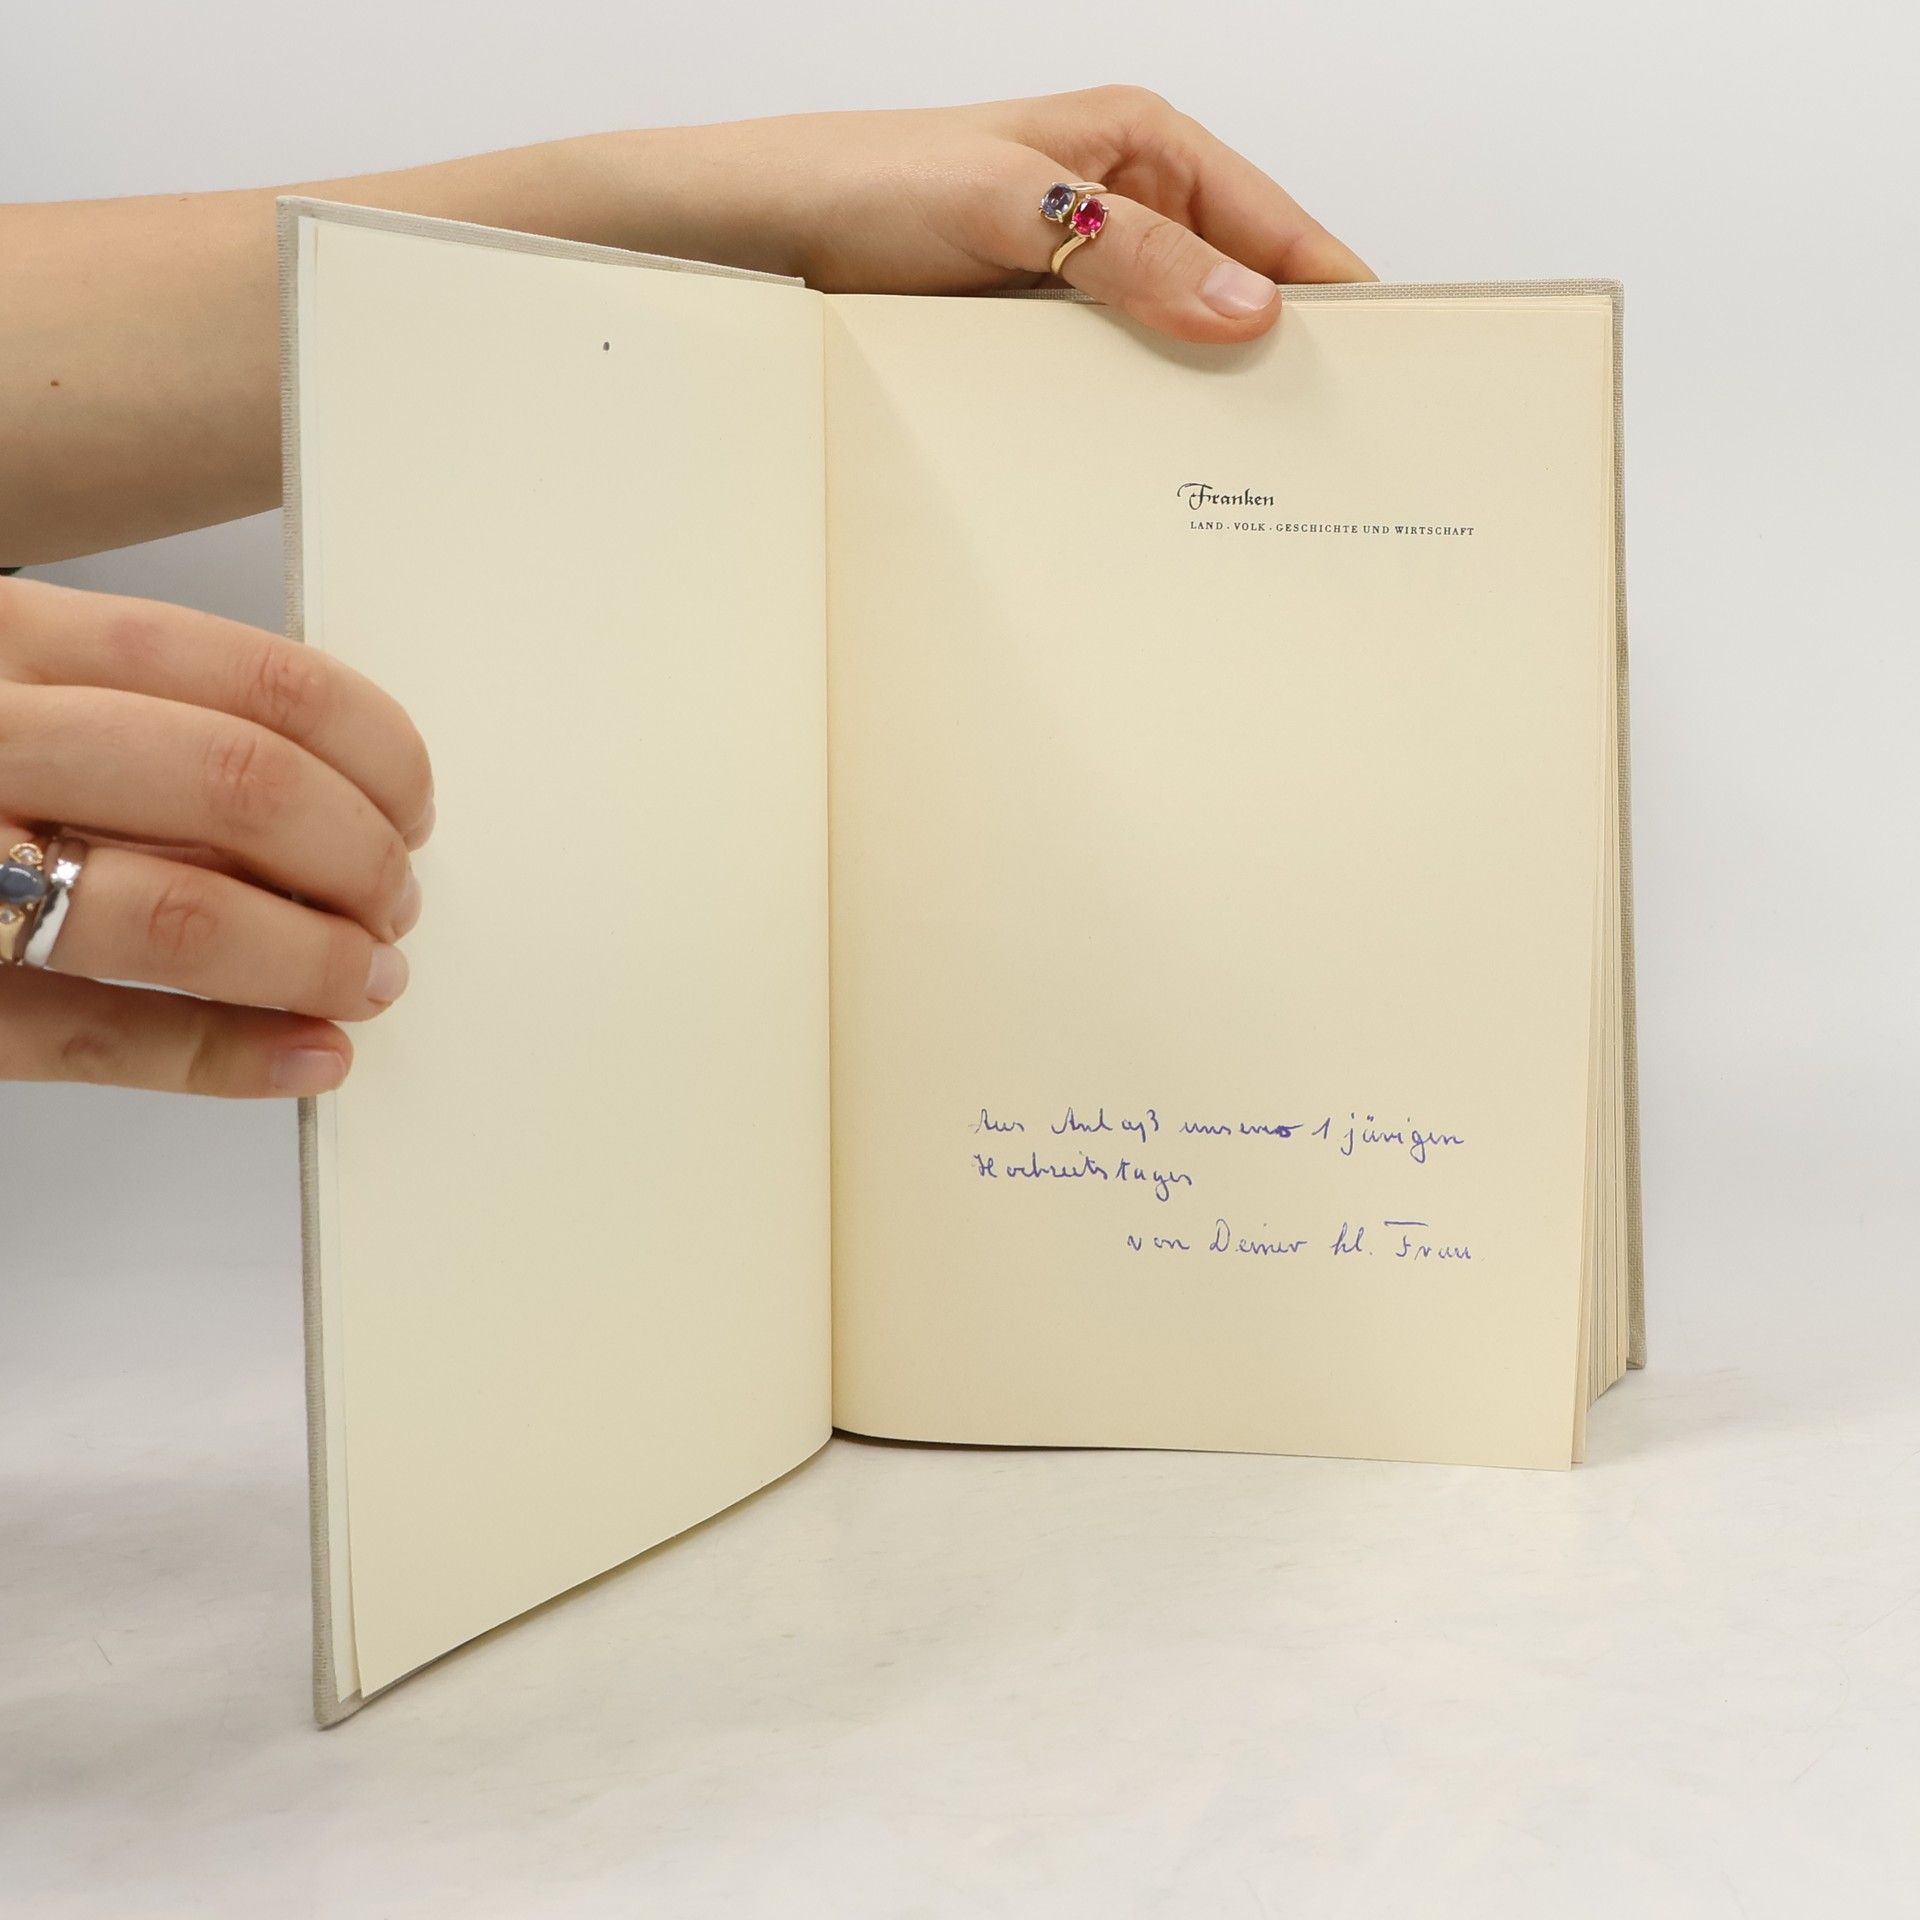 Franken
LAND · VOLK · GESCHICHTE UND WIRTSCHAFT
Aus Anlaß unseres 1 järigen
Hochzeitstages
von Deiner kl. Frau